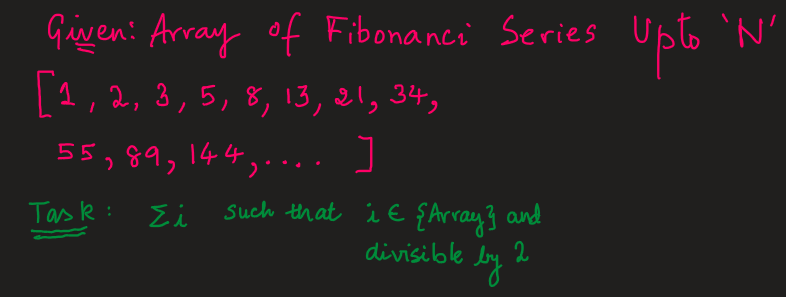 Given: Array of Fibonanci Series Upto 'N'
[1, 2, 3, 5, 8, 13, 21, 34,
55, 89, 144, .... ]
Task: Σi such that i ∈ {Array} and
divisible by 2